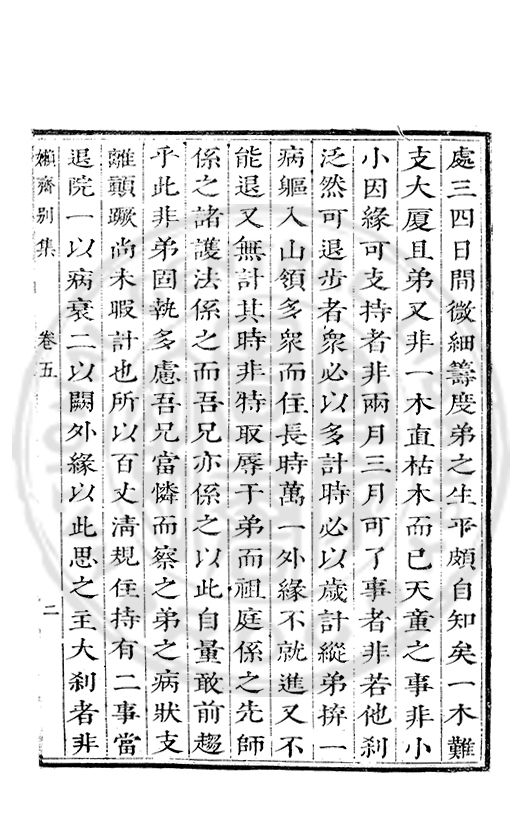 處三四日間微細籌度弟之生平頗自知矣一木難
支大厦且弟又非一木直枯木而已天童之事非小
小因緣可支持者非兩月三月可了事者非若他剎
泛然可退步者衆必以多計時必以歲計縱弟拚一
病軀入山領多衆而住長時萬一外緣不就進又不
能退又無計其時非特取辱于弟而祖庭係之先師
係之諸護法係之而吾兄亦係之以此自量敢前趨
乎此非弟固執多慮吾兄當憐而察之弟之病狀支
離顛蹶尚未暇計也所以百丈清規住持有二事當
退院一以病衰二以闕外緣以此思之主大剎者非
嬾齋别集
卷五
二